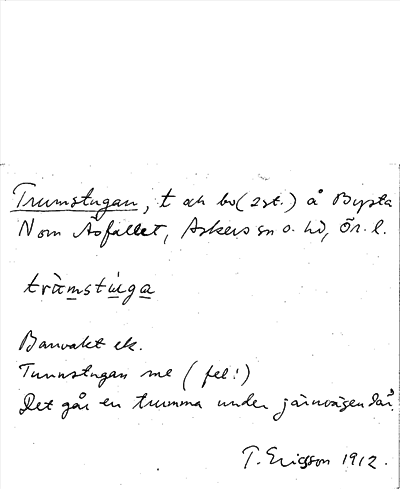 Trumstugan, t och bo (2 st.) å Bysta
N om Åsfallet, Askers sn o. hd, Ör. l.
tràmstúga
Banvakt ek.
Tunnstugan me (fel!)
Det går en trumma under järnvägen där.
T. Ericsson 1912.